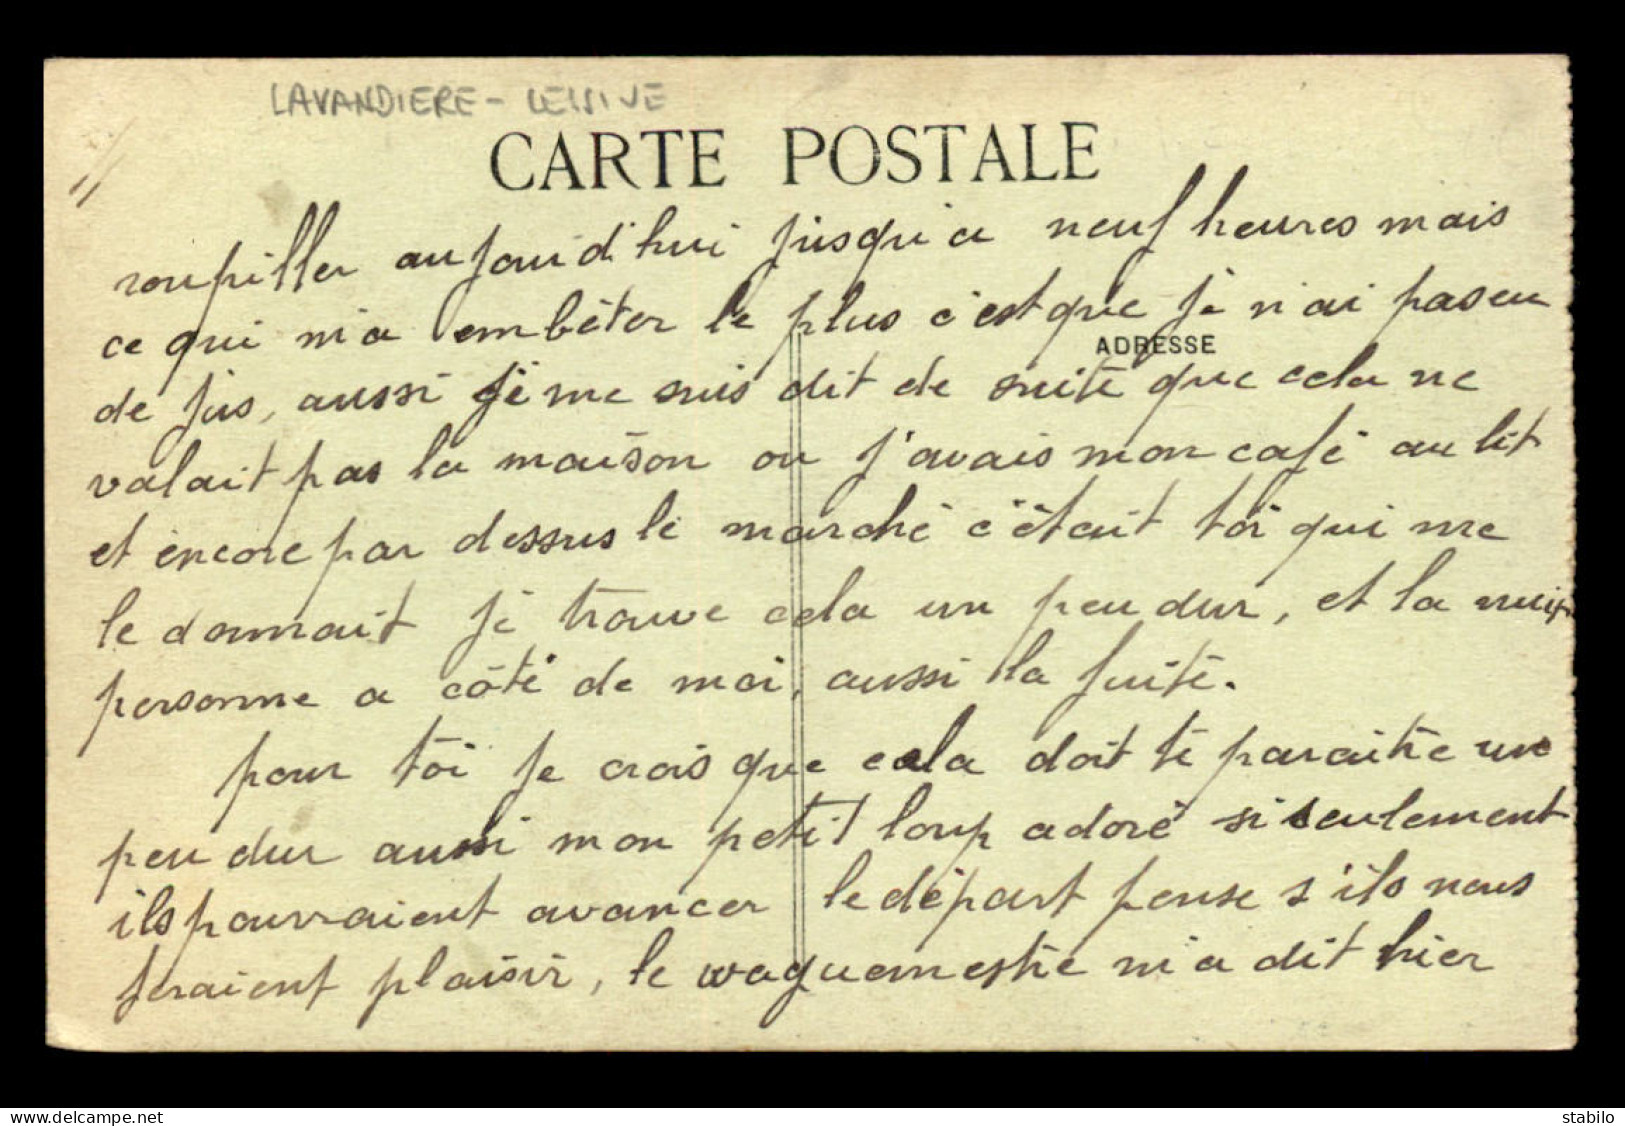 LAVANDIERE - LESSIVE
CARTE POSTALE
roupiller aujourd'hui jusqu'a neuf heures mais
ce qui m'a embêter le plus c'est que je n'ai pas eu
ADRESSE
de jus, aussi je me suis dit de suite que cela ne
valait pas la maison ou j'avais mon café au lit
et encore par dessus le marché c'était toi qui me
le donnait je trouve cela un peu dur, et la nuit
personne a côté de moi, aussi la fuite.
pour toi je crois que cela doit te paraitre un
peu dur aussi mon petit loup adoré si seulement
ils pourraient avancer le départ pense s'ils nous
feraient plaisir, le waguemestre m'a dit hier
delcampe.net
stabilo